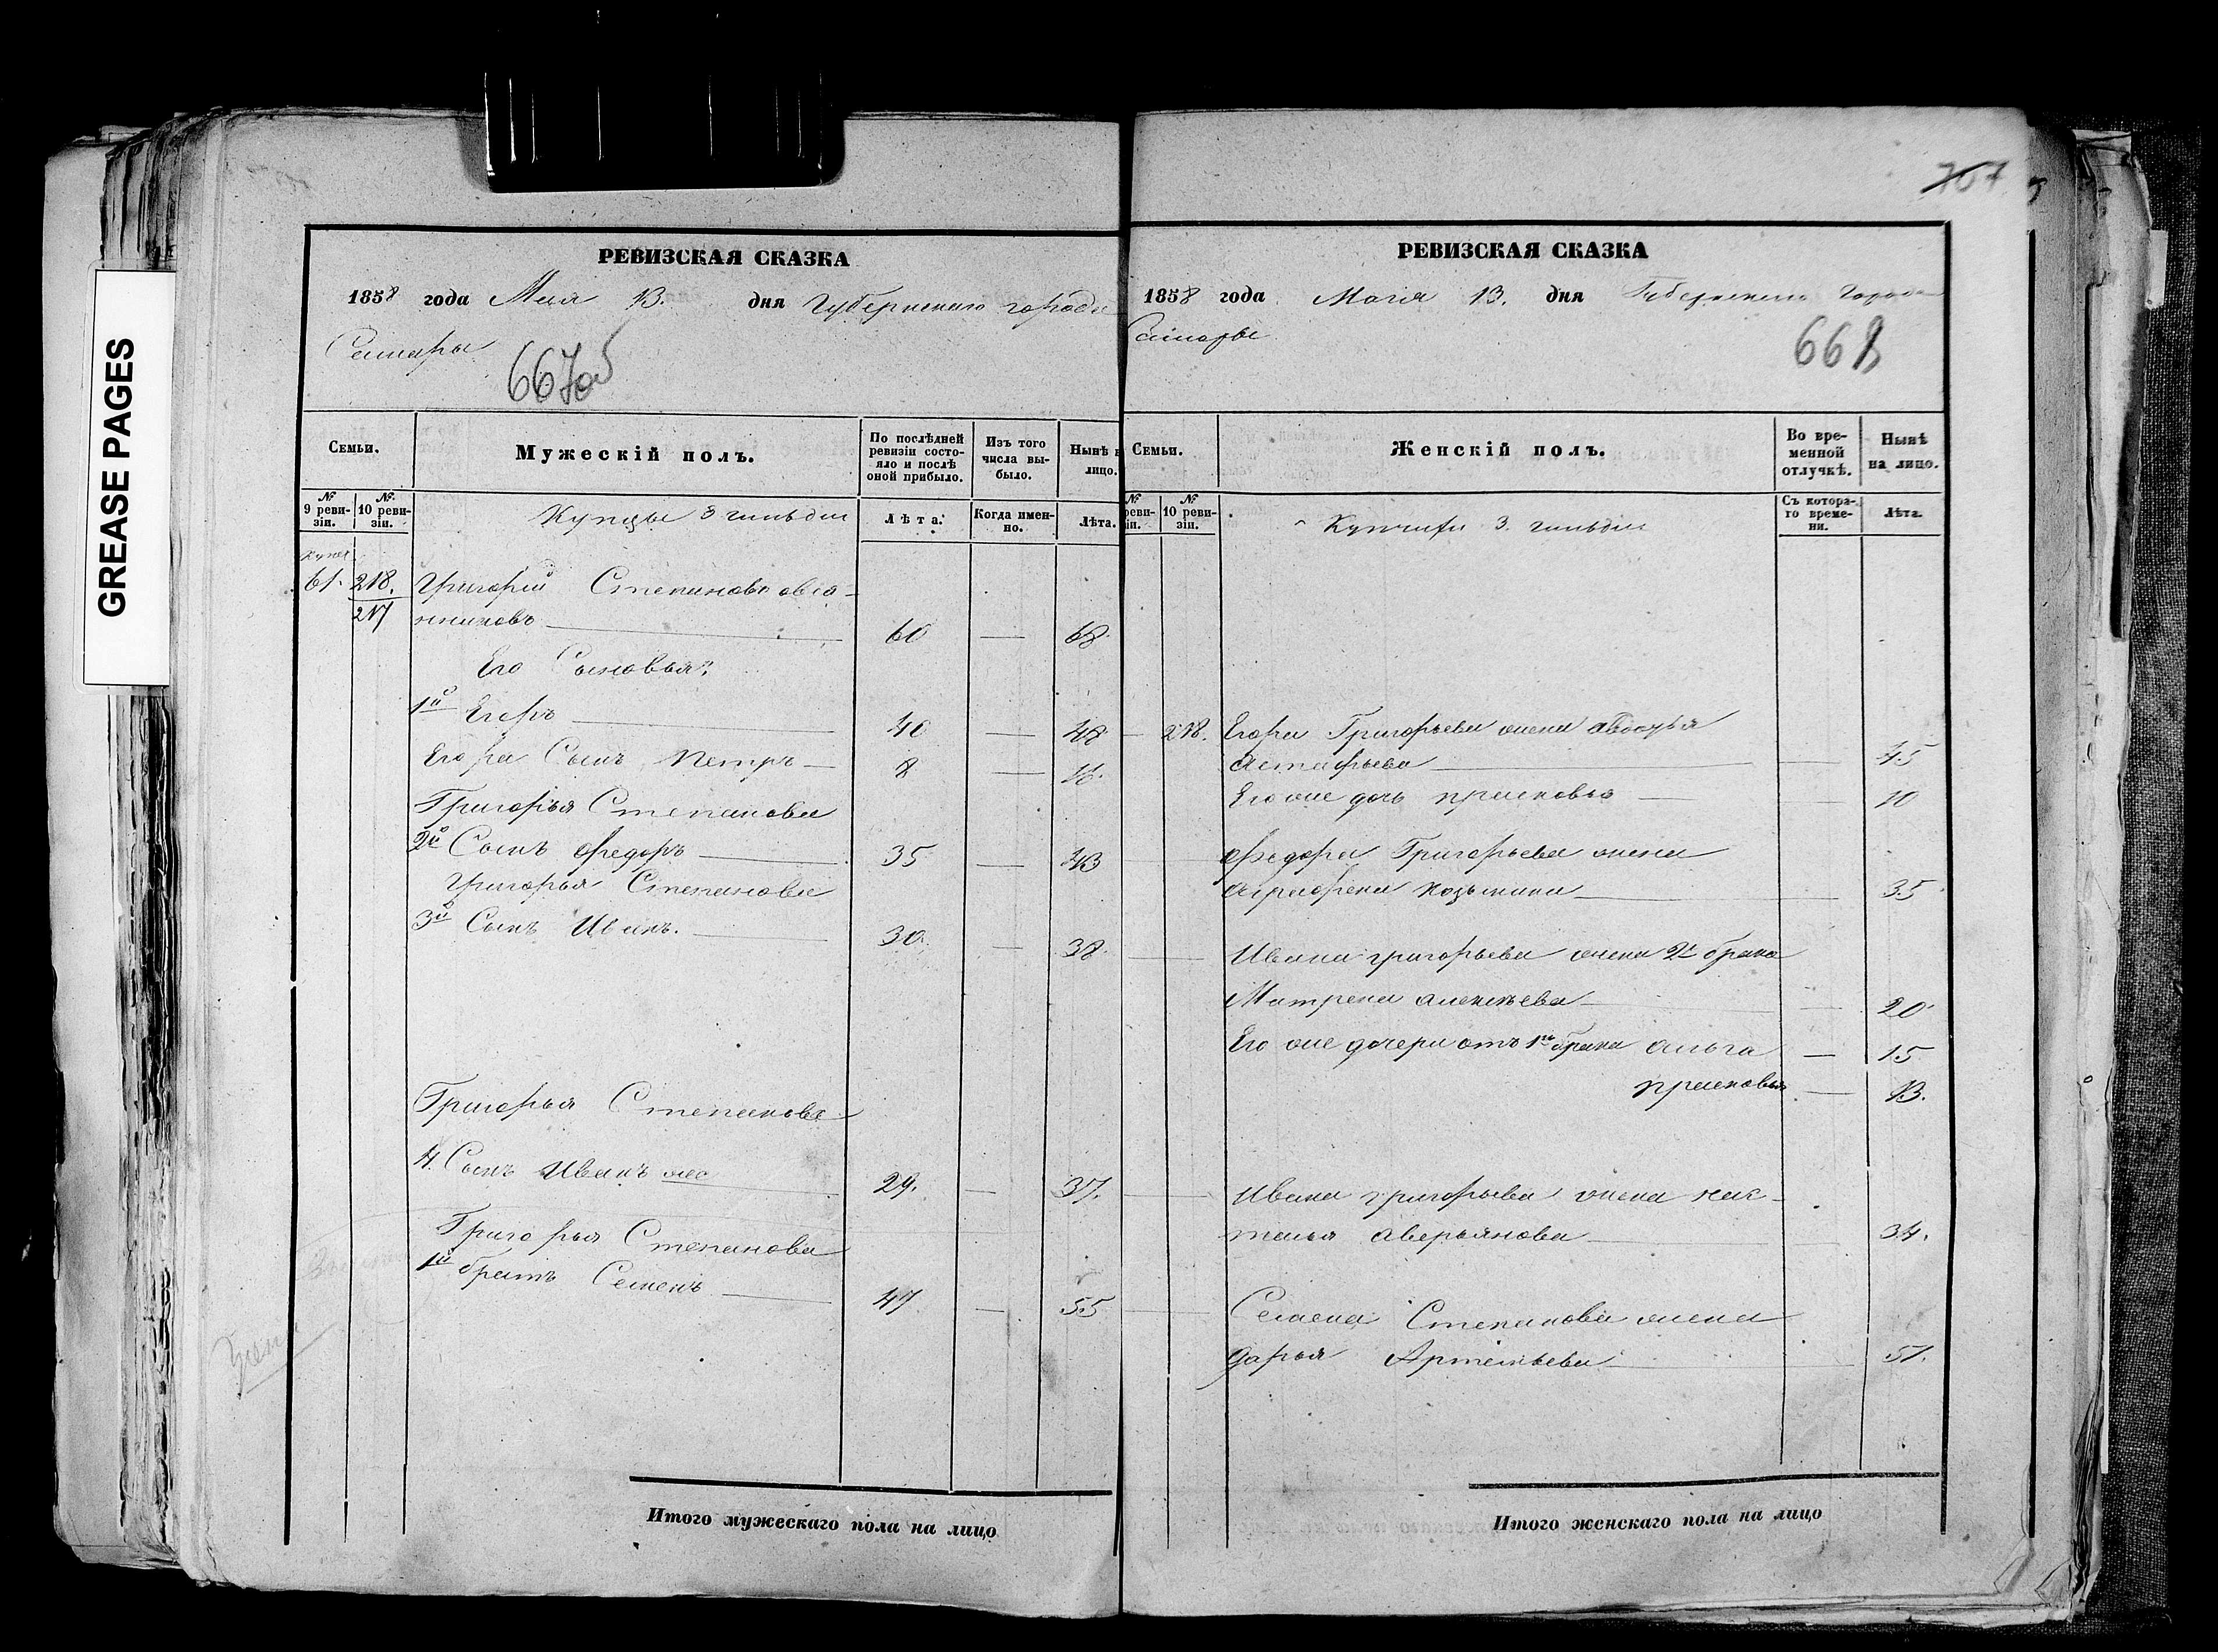 GREASE PAGES
РЕВИЗСКАЯ СКАЗКА
1858 года Мая 13. дня Губернскаго города
Самары
667об
Семьи.
Мужескій полъ.
По послѣдней ревизіи состояло и послѣ оной прибыло.
Изъ того числа выбыло.
Нынѣ
лицо.
№ 9 ревизіи.
№ 10 ревизіи.
Купцы 3 гильдіи
Лѣта.
Когда именно.
Лѣта.
61. 218. Григорій Степановъ
217 нниковъ 60 — 68.
Его Сыновья:
1й Егоръ 40 — 48
Егора Сынъ Петръ — 8 — 16.
Григорья Степанова
2й Сынъ Федоръ 35 — 43
Григорья Степанова
3й Сынъ Иванъ. 30. — 38.
Григорья Степанова
4. Сынъ Иванъ же 29. — 37.
Григорья Степанова
1й братъ Семенъ 47 — 55
Итого мужескаго пола на лицо
707
РЕВИЗСКАЯ СКАЗКА
1858 года Маія 13. дня Губернскаго Города
Самары
668
Семьи.
Женскій полъ.
Во временной отлучкѣ.
Нынѣ на лицо.
№
реви-
зіи.
№ 10 ревизіи.
Съ котораго времени.
Лѣта.
Купчихи 3. гильдіи
218. Егора Григорьева жена Авдотья
Астафьева — 45
Его же дочь Прасковья — 10
Федора Григорьева жена
Аграфена Козьмина 35
Ивана Григорьева жена 2го брака
Матрена Алексѣева — 20.
Его же дочери отъ 1го брака Ольга — 15
Прасковья — 13.
Ивана Григорьева жена Нас-
тасья Аверьянова 34.
Семена Степанова жена
Дарья Артемьева 51.
Итого женскаго пола на лицо